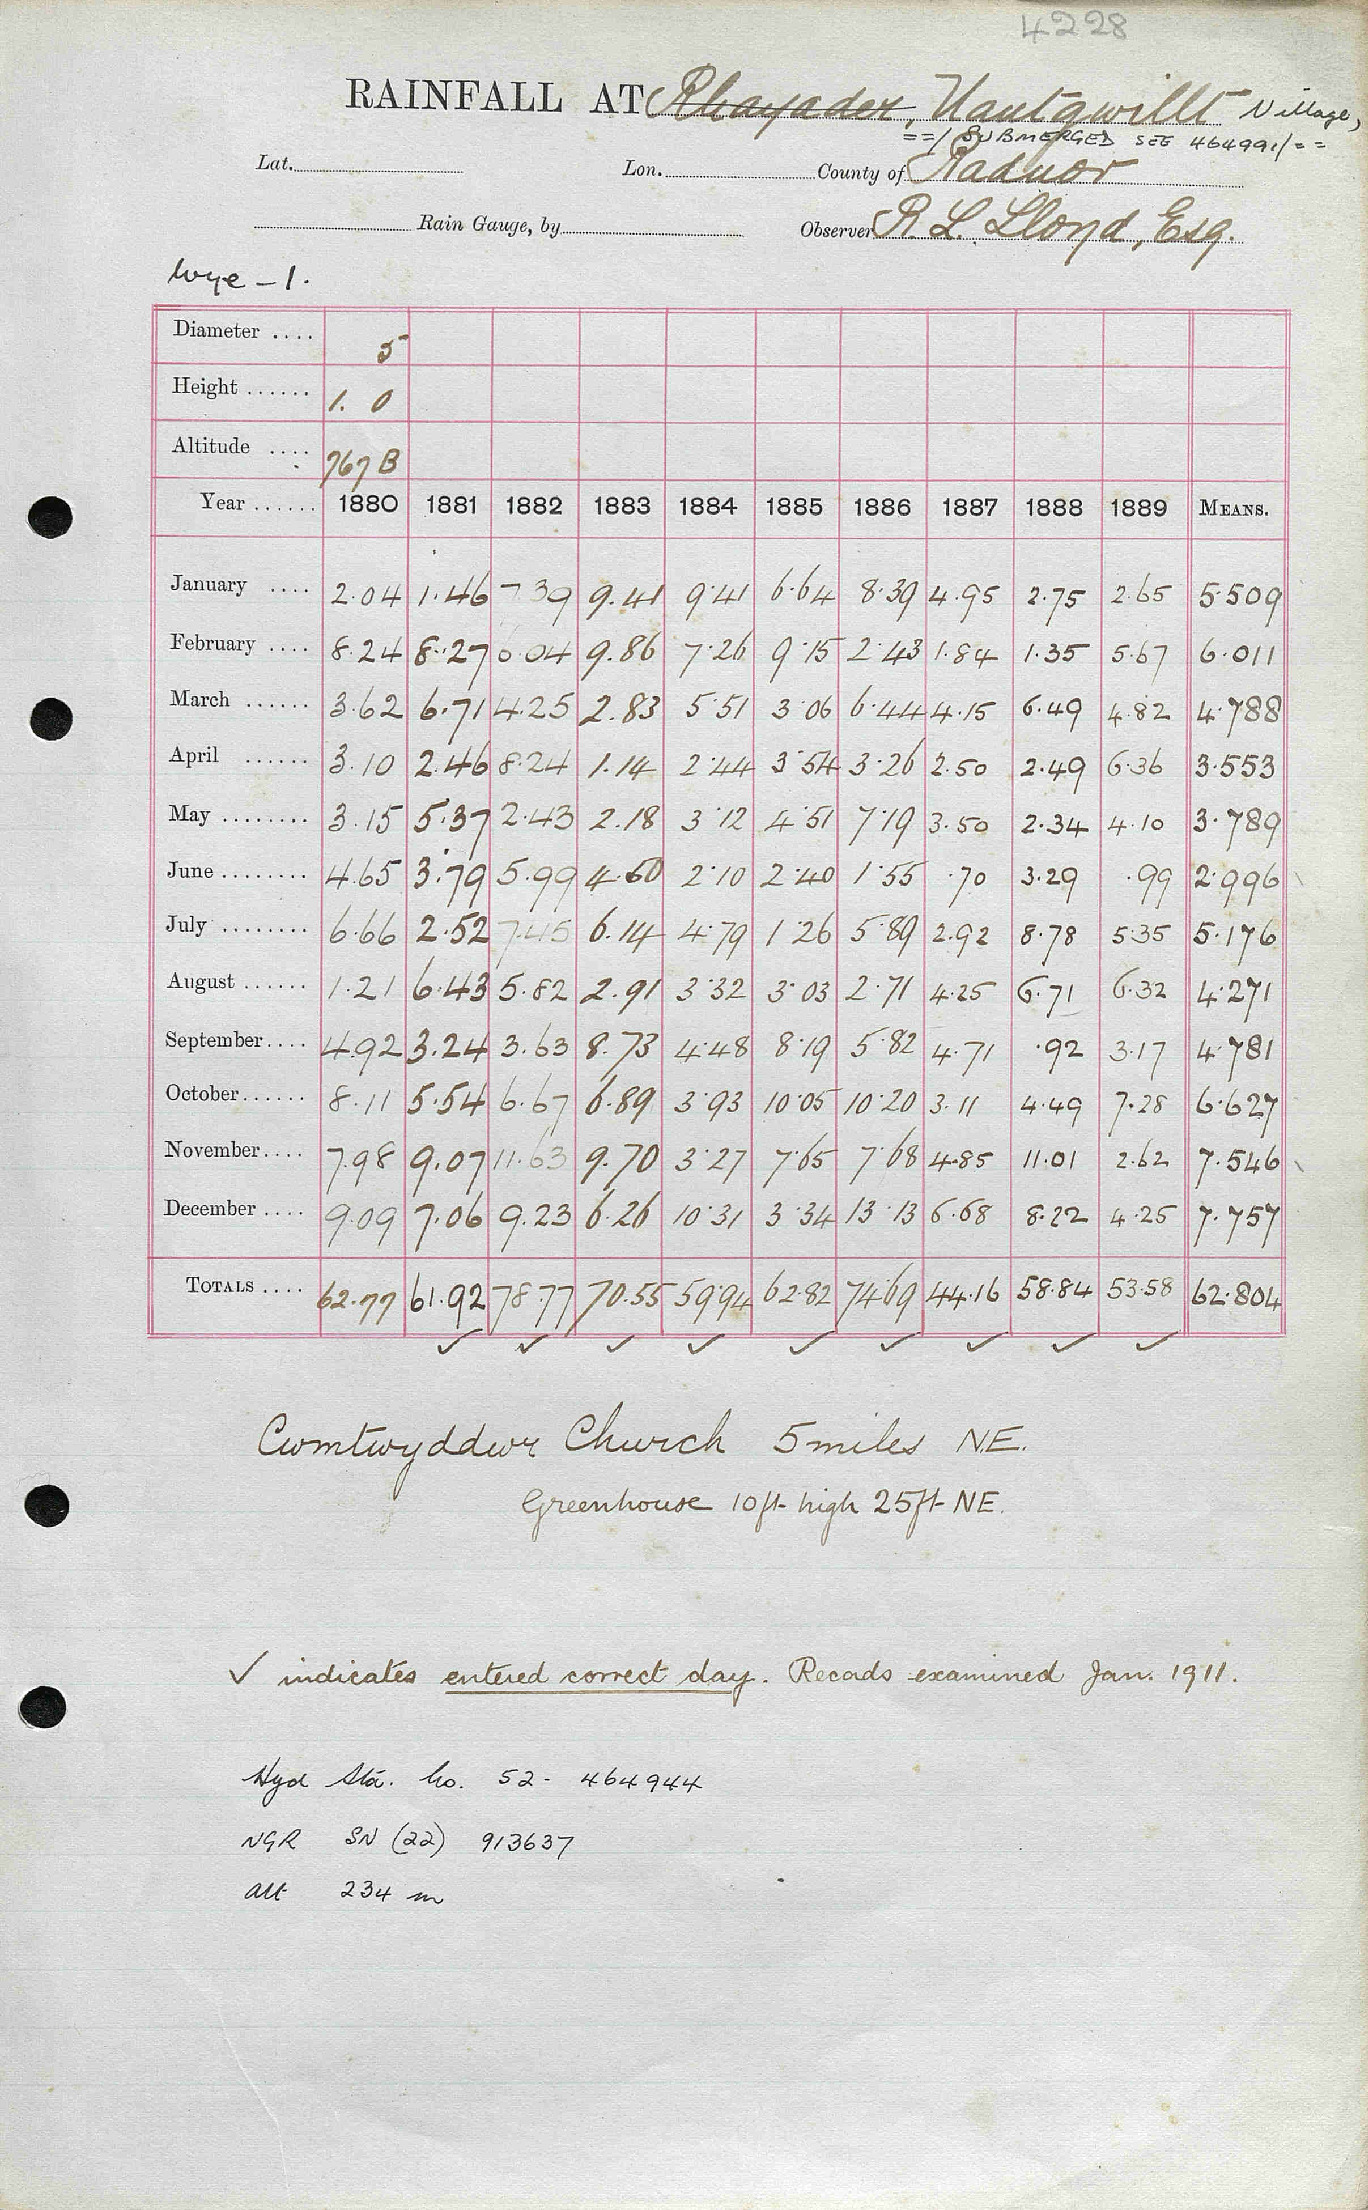 4228
RAINFALL AT Rhayader, Nantgwillt Village,
==/ SUBMERGED SEE 464991/==
Lat. Lon. County of Radnor
Rain Gauge, by Observer R. L. Lloyd, Esq.
Wye - 1.
Diameter .... 5
Height ...... 1. 0
Altitude .... 767 B
Year ...... 1880 1881 1882 1883 1884 1885 1886 1887 1888 1889 MEANS.
January .... 2.04 1.46 7.39 9.41 9.41 6.64 8.39 4.95 2.75 2.65 5.509
February .... 8.24 8.27 6.04 9.86 7.26 9.15 2.43 1.84 1.35 5.67 6.011
March ...... 3.62 6.71 4.25 2.83 5.51 3.06 6.44 4.15 6.49 4.82 4.788
April ...... 3.10 2.46 8.24 1.14 2.44 3.54 3.26 2.50 2.49 6.36 3.553
May ........ 3.15 5.37 2.43 2.18 3.12 4.51 7.19 3.50 2.34 4.10 3.789
June ........ 4.65 3.79 5.99 4.60 2.10 2.40 1.55 .70 3.29 .99 2.996
July ........ 6.66 2.52 7.45 6.14 4.79 1.26 5.89 2.92 8.78 5.35 5.176
August ...... 1.21 6.43 5.82 2.91 3.32 3.03 2.71 4.25 6.71 6.32 4.271
September.... 4.92 3.24 3.63 8.73 4.48 8.19 5.82 4.71 .92 3.17 4.781
October...... 8.11 5.54 6.67 6.89 3.93 10.05 10.20 3.11 4.49 7.28 6.627
November.... 7.98 9.07 11.63 9.70 3.27 7.65 7.68 4.85 11.01 2.62 7.546
December .... 9.09 7.06 9.23 6.26 10.31 3.34 13.13 6.68 8.22 4.25 7.757
TOTALS .... 62.77 61.92 78.77 70.55 59.94 62.82 74.69 44.16 58.84 53.58 62.804
✓ ✓ ✓ ✓ ✓ ✓ ✓ ✓ ✓
Cwmtwyddwr Church 5 miles N.E.
Greenhouse 10ft high 25ft NE.
✓ indicates entered correct day. Records examined Jan. 1911.
Hyd Sta. No. 52- 464944
NGR SN (22) 913637
alt 234 m